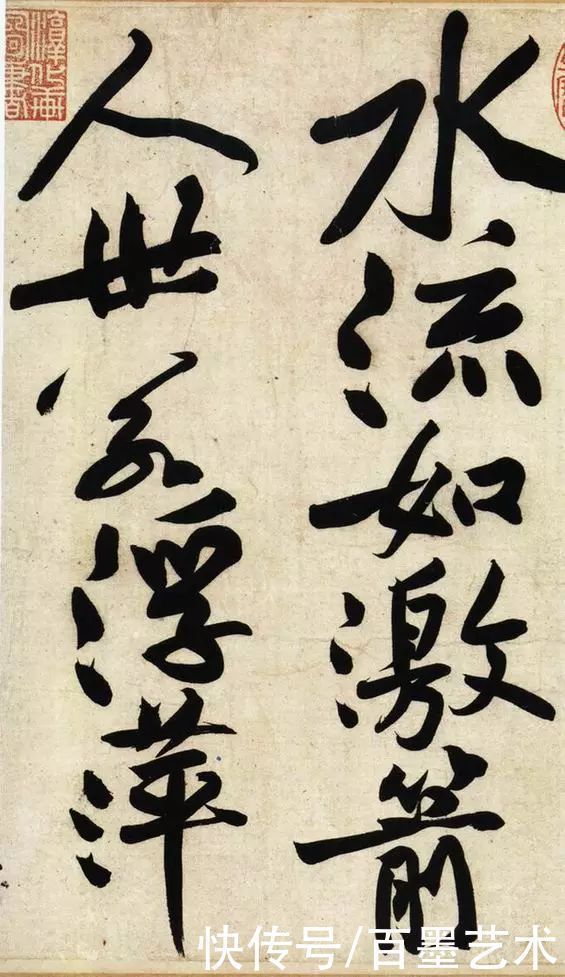 水流如激箭
人世若浮萍
快传号/百墨艺术